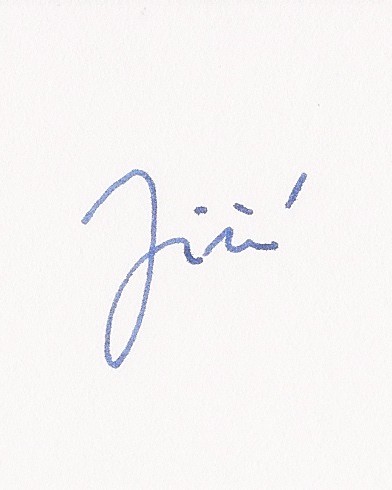 Jiří